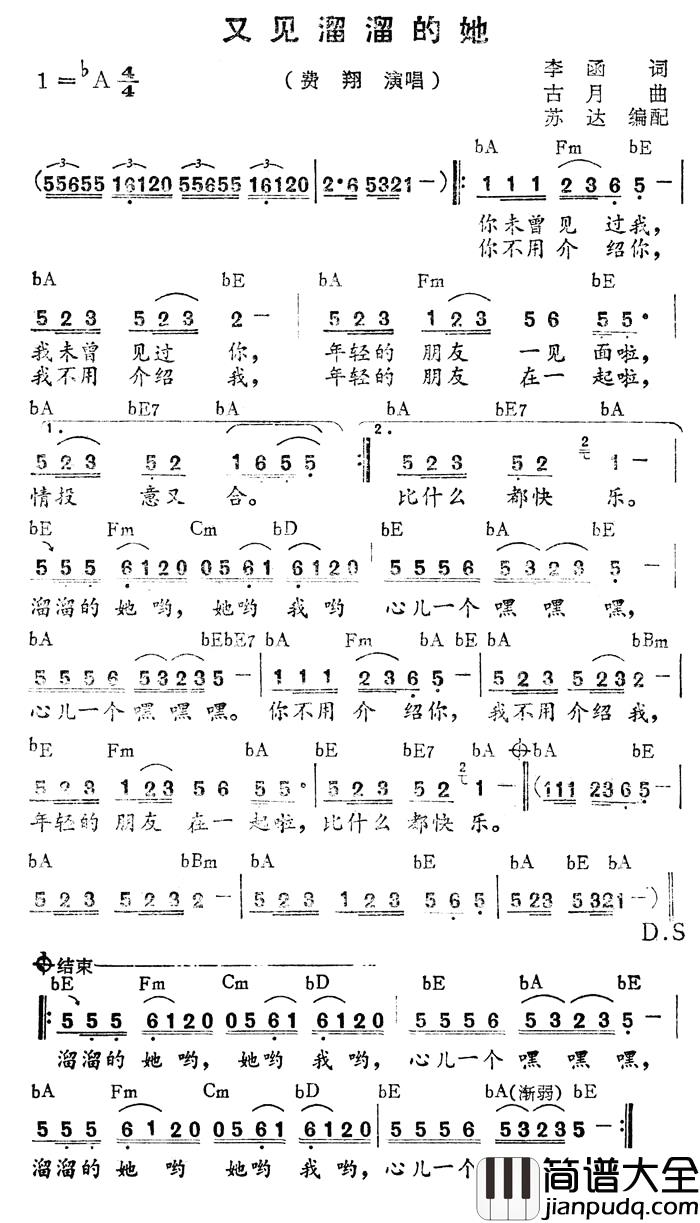 又见溜溜的她
1=bA 4/4
(费翔演唱)
李函 词
古月 曲
苏达 编配
bA Fm bE
(55655 16120 55655 16120 | 2·6 5321 -) ‖: 111 236 5 - |
你未曾见 过我,
你不用介 绍你,
bA bE bA Fm bE
523 523 2 - | 523 123 56 55· |
我未曾 见过 你, 年轻的 朋友 一见 面啦,
我不用 介绍 我, 年轻的 朋友 在一 起啦,
bA bE7 bA bA bE7 bA
1. 2.
523 52 1655 :‖ 523 52 2 1 - |
情投 意又 合。 比什么 都快 乐。
bE Fm Cm bD bE bA bE
555 6120 0561 6120 | 5556 5323 5 - |
溜溜的 她哟, 她哟 我哟 心儿一个 嘿 嘿 嘿,
bA bE bE7 bA Fm bA bE bA bBm
5556 53235 - | 111 236 5 - | 523 5232 - |
心儿一个嘿嘿嘿。 你不用 介 绍你, 我不用介绍我,
bE Fm bA bE bE7 bA bA bE
523 123 56 55· | 523 52 2 1 - ‖ (111 2365 - |
年轻的 朋友 在一 起啦, 比什么 都快 乐。
bA bBm bA bE bA bE bA
523 5232 - | 523 123 565 | 523 5321 -) ‖
D.S
结束
bE Fm Cm bD bE bA bE
‖: 555 6120 0561 6120 | 5556 5323 5 - |
溜溜的 她哟, 她哟 我哟, 心儿一个 嘿 嘿 嘿,
bA Fm Cm bD bE bA(渐弱) bE
555 6120 0561 6120 | 5556 53235 - :‖
溜溜的 她 哟 她哟 我哟, 心儿一个
简谱大全
jianpudq.com